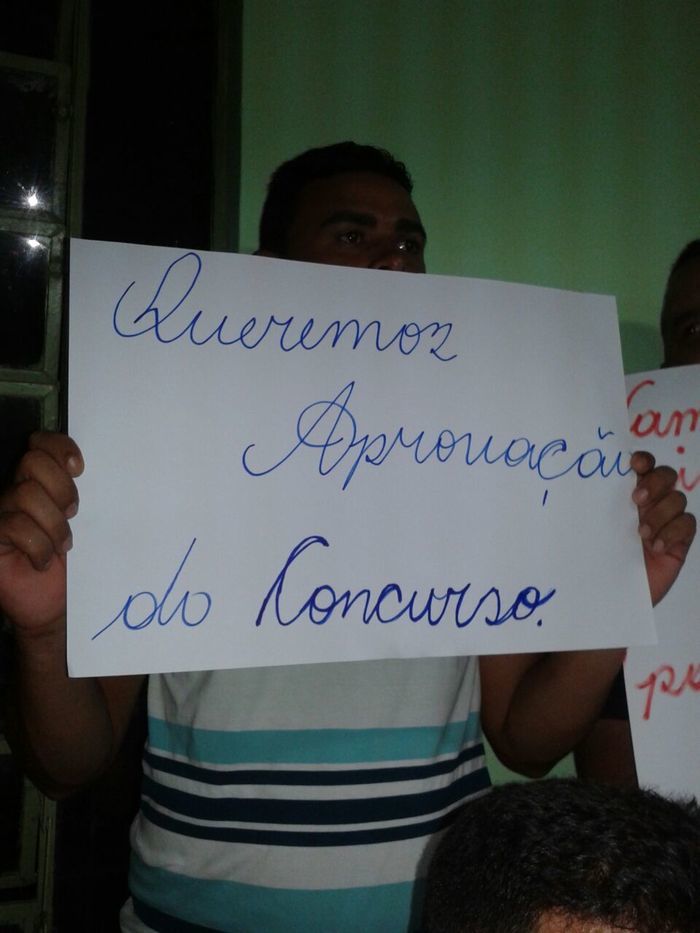 Queremos
Aprovação
do Concurso.